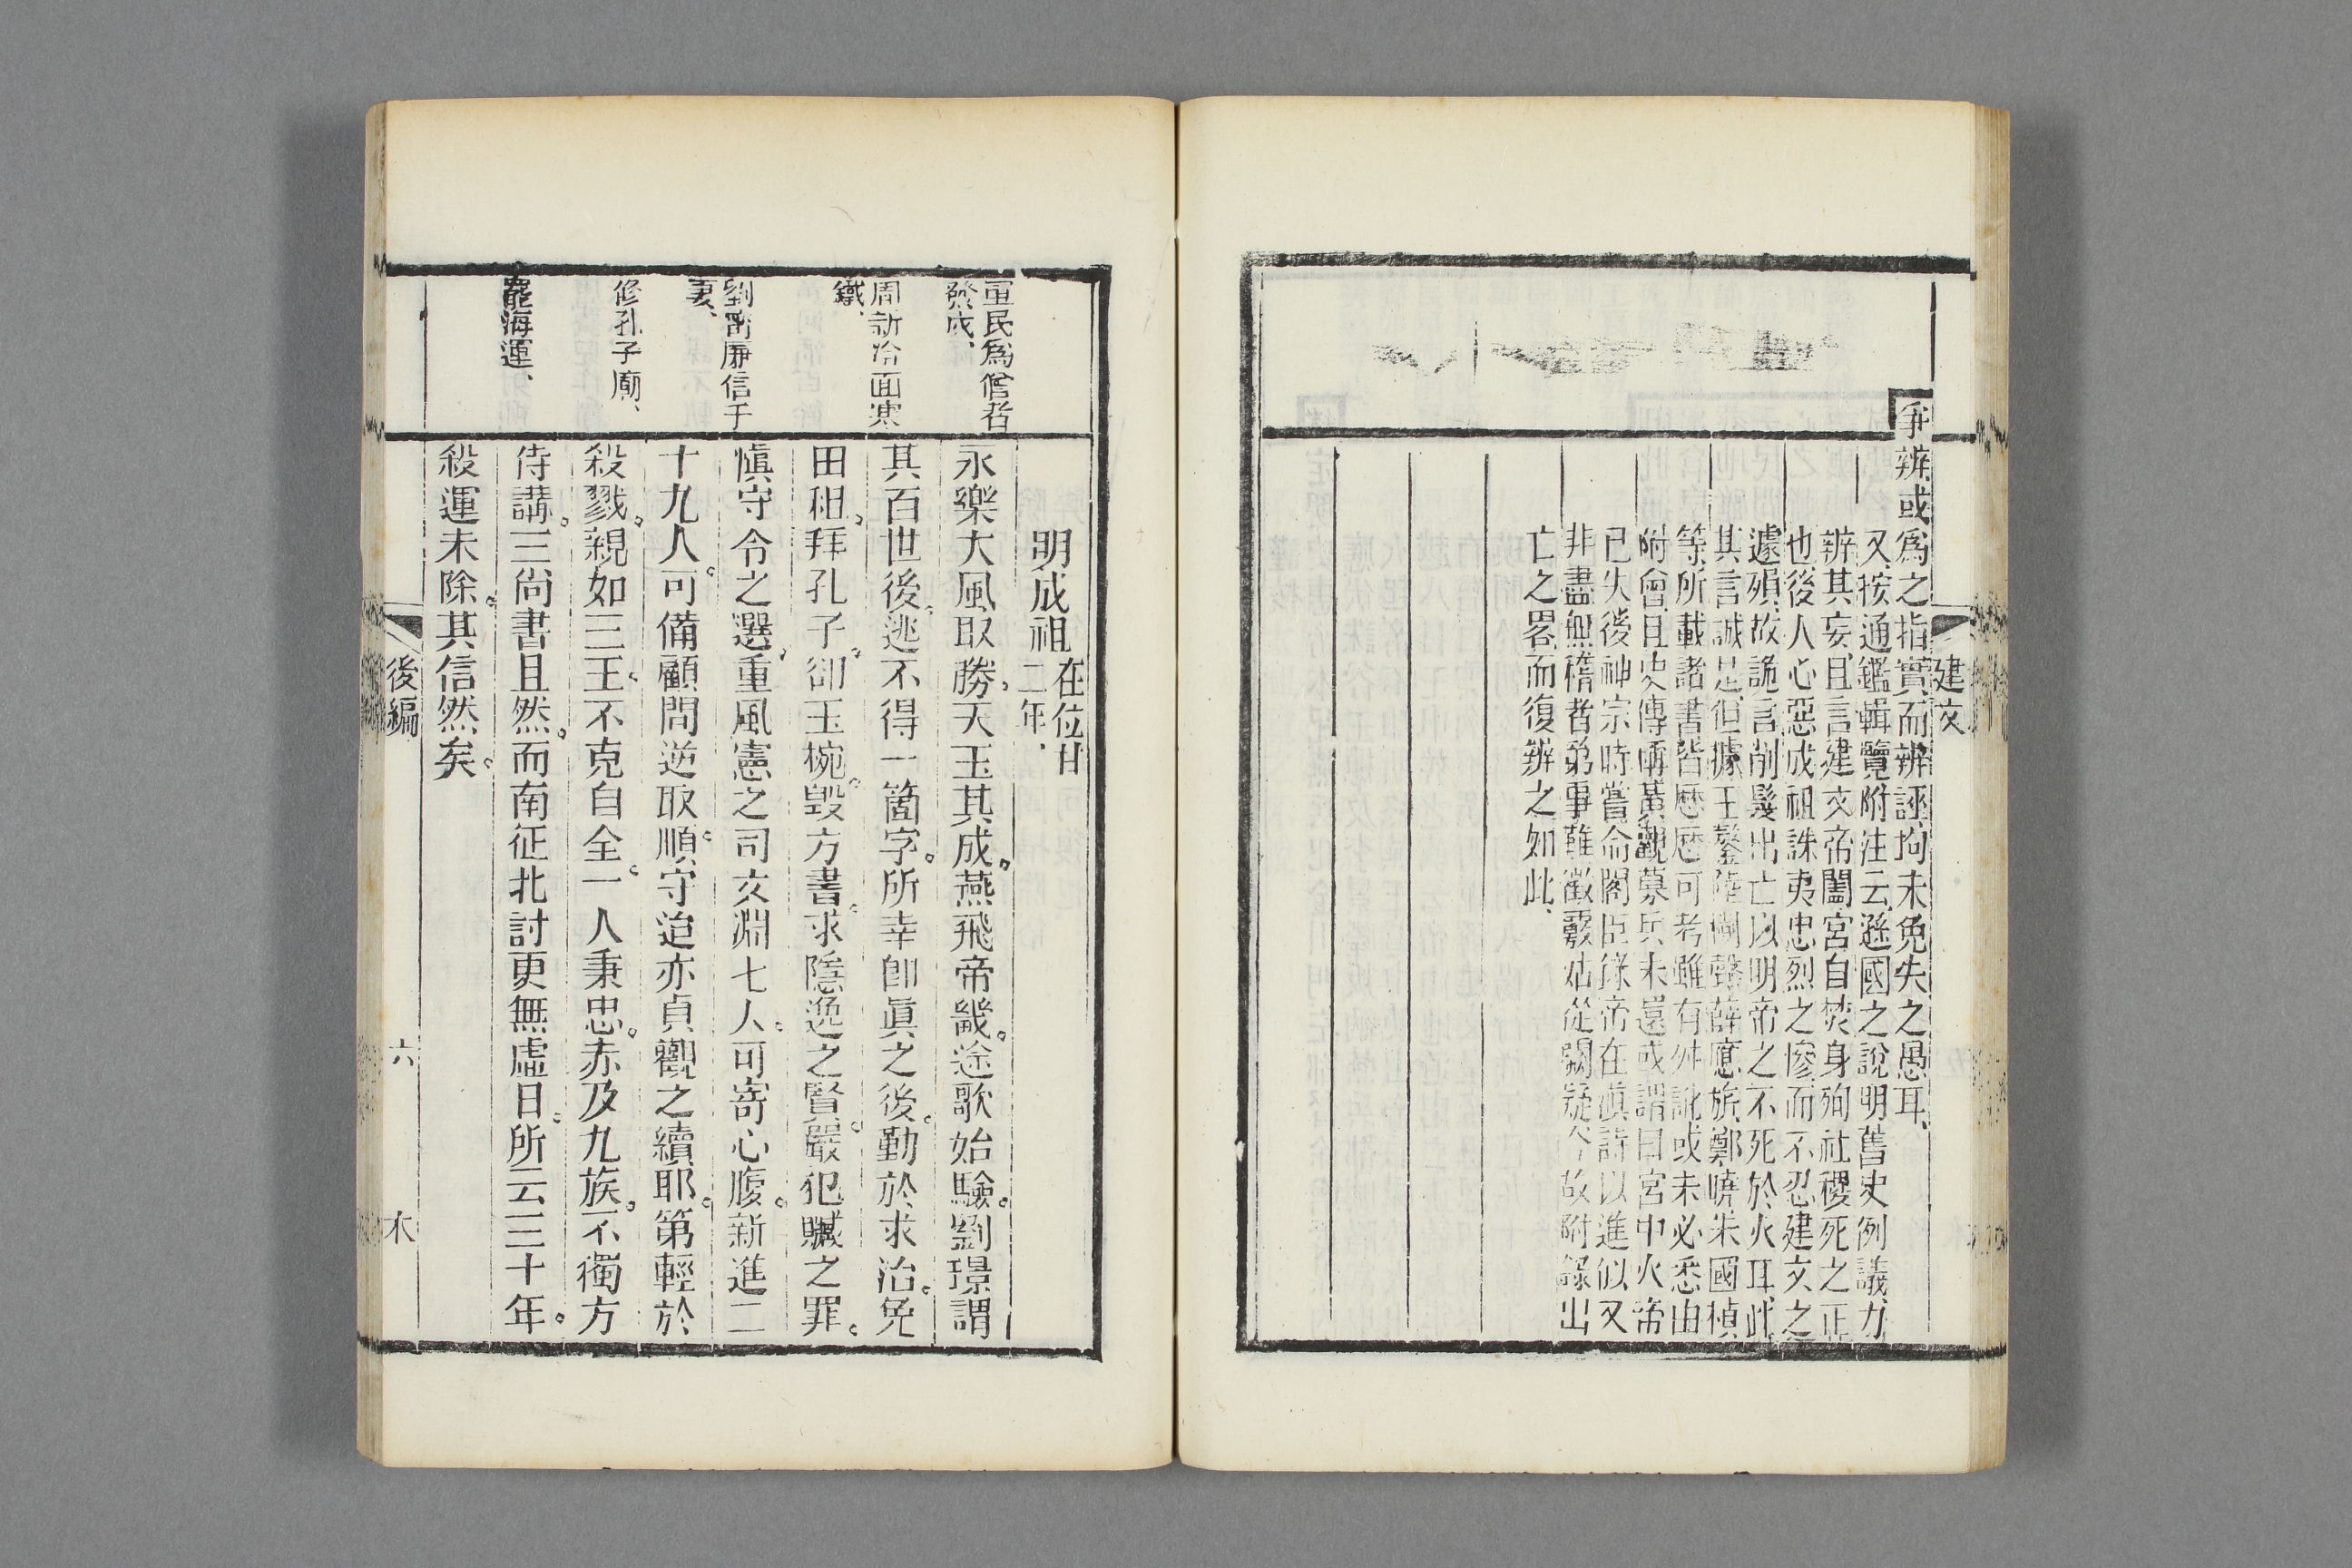 建文
爭辨或爲之指實而辨誣拘未免失之愚耳、
又按通鑑輯覽附注云遜國之說明舊史例議力
辨其妄且言建文帝闔宮自焚身殉社稷死之正
也後人心惡成祖誅夷忠烈之慘而不忍建文之
遽殞故詭言削髮出亡以明帝之不死於火耳此
其言誠是但據王鏊陸樹聲薛應旂鄭曉朱國楨
等所載諸書皆歷歷可考雖有舛訛或未必悉由
附會且史傳稱黃觀募兵未還或謂曰宮中火帝
已失後神宗時嘗命閣臣錄帝在滇詩以進似又
非盡無稽者第事難徵覈姑從闕疑今故附錄出
亡之畧而復辨之如此、
明成祖在位廿
二年、
永樂大風取勝。天王其成。燕飛帝畿。途歌始驗。劉璟謂
其百世後。逃不得一箇字。所幸卽眞之後。勤於求治。免
田租。拜孔子。卻玉椀。毀方書。求隱逸之賢。嚴犯贓之罪。
愼守令之選。重風憲之司文淵七人。可寄心腹。新進二
十九人。可備顧問逆取順。守治亦貞觀之續耶。第輕於
殺戮。親如三王。不克自全。一人秉忠。赤及九族。不獨方
侍講。三尙書且然。而南征北討更無虛日。所云三十年。
殺運未除。其信然矣。
軍民爲僧者
發戍、
周新冷面寒
鐵、
劉觀廉信于
妻、
修孔子廟、
罷海運、
後編
六
木